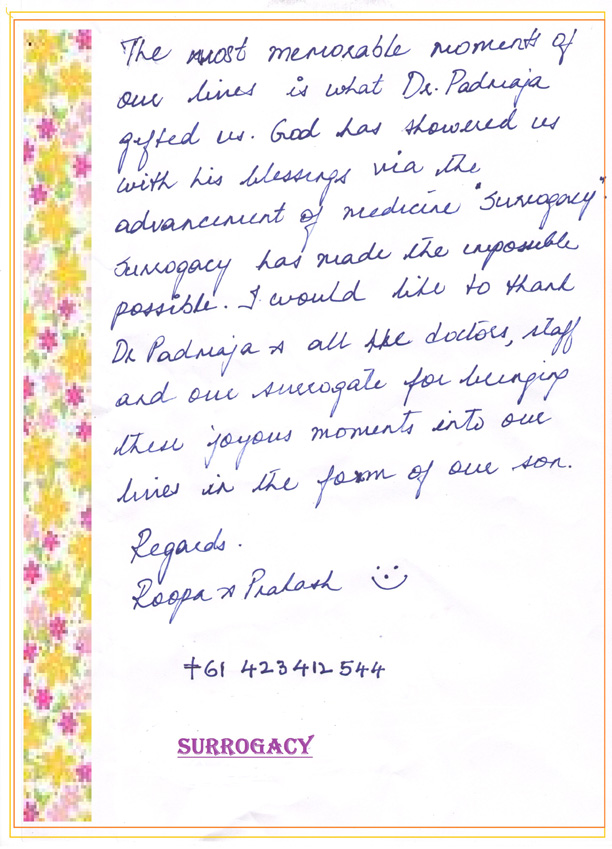 The most memorable moment of
our lives is what Dr. Padmaja
gifted us. God has showered us
with his blessings via the
advancement of medicine "Surrogacy".
Surrogacy has made the impossible
possible. I would like to thank
Dr Padmaja & all the doctors, staff
and our surrogate for bringing
these joyous moments into our
lives in the form of our son.
Regards.
Roopa & Prakash
+61 423412544
SURROGACY